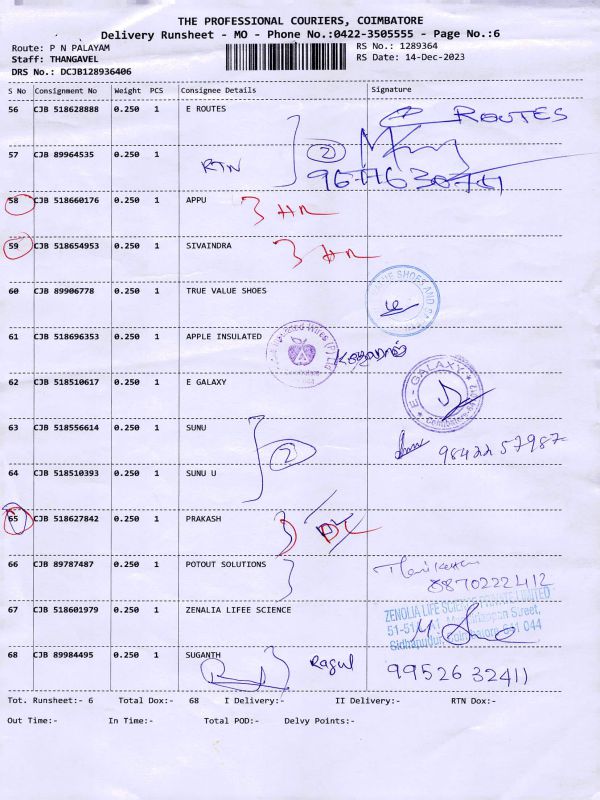 THE PROFESSIONAL COURIERS, COIMBATORE
Delivery Runsheet - MO - Phone No.:0422-3505555 - Page No.:6
Route: P N PALAYAM
RS No.: 1289364
Staff: THANGAVEL
RS Date: 14-Dec-2023
DRS No.: DCJB128936406
S No Consignment No Weight PCS Consignee Details Signature
56 CJB 518628888 0.250 1 E ROUTES
ROUTES
57 CJB 89964535 0.250 1
RTN 2
58 CJB 518660176 0.250 1 APPU
59 CJB 518654953 0.250 1 SIVAINDRA
60 CJB 89906778 0.250 1 TRUE VALUE SHOES
61 CJB 518696353 0.250 1 APPLE INSULATED
62 CJB 518510617 0.250 1 E GALAXY
E - GALAXY
63 CJB 518556614 0.250 1 SUNU
2 98422 57987
64 CJB 518510393 0.250 1 SUNU U
65 CJB 518627842 0.250 1 PRAKASH
66 CJB 89787487 0.250 1 POTOUT SOLUTIONS
8870222412
67 CJB 518601979 0.250 1 ZENALIA LIFEE SCIENCE
ZENOLIA LIFE SCIENCE PRIVATE LIMITED
Street,
Sidhapudur, Coimbatore-641 044
68 CJB 89984495 0.250 1 SUGANTH
Ragul 9952632411
Tot. Runsheet:- 6 Total Dox:- 68 I Delivery:- II Delivery:- RTN Dox:-
Out Time:- In Time:- Total POD:- Delvy Points:-